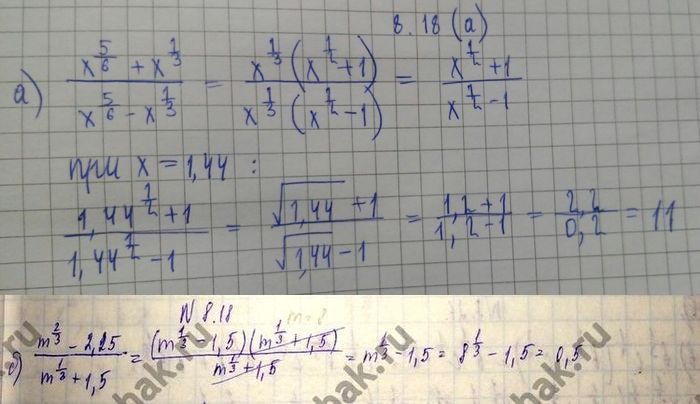 8.18 (а)
а) (x^(5/6) + x^(1/3)) / (x^(5/6) - x^(1/3)) = (x^(1/3) (x^(1/2) + 1)) / (x^(1/3) (x^(1/2) - 1)) = (x^(1/2) + 1) / (x^(1/2) - 1)
при x = 1,44 :
(1,44^(1/2) + 1) / (1,44^(1/2) - 1) = (√1,44 + 1) / (√1,44 - 1) = (1,2 + 1) / (1,2 - 1) = 2,2 / 0,2 = 11
N 8.18
m = 8
б) (m^(2/3) - 2,25) / (m^(1/3) + 1,5) = ((m^(1/3) - 1,5)(m^(1/3) + 1,5)) / (m^(1/3) + 1,5) = m^(1/3) - 1,5 = 8^(1/3) - 1,5 = 0,5